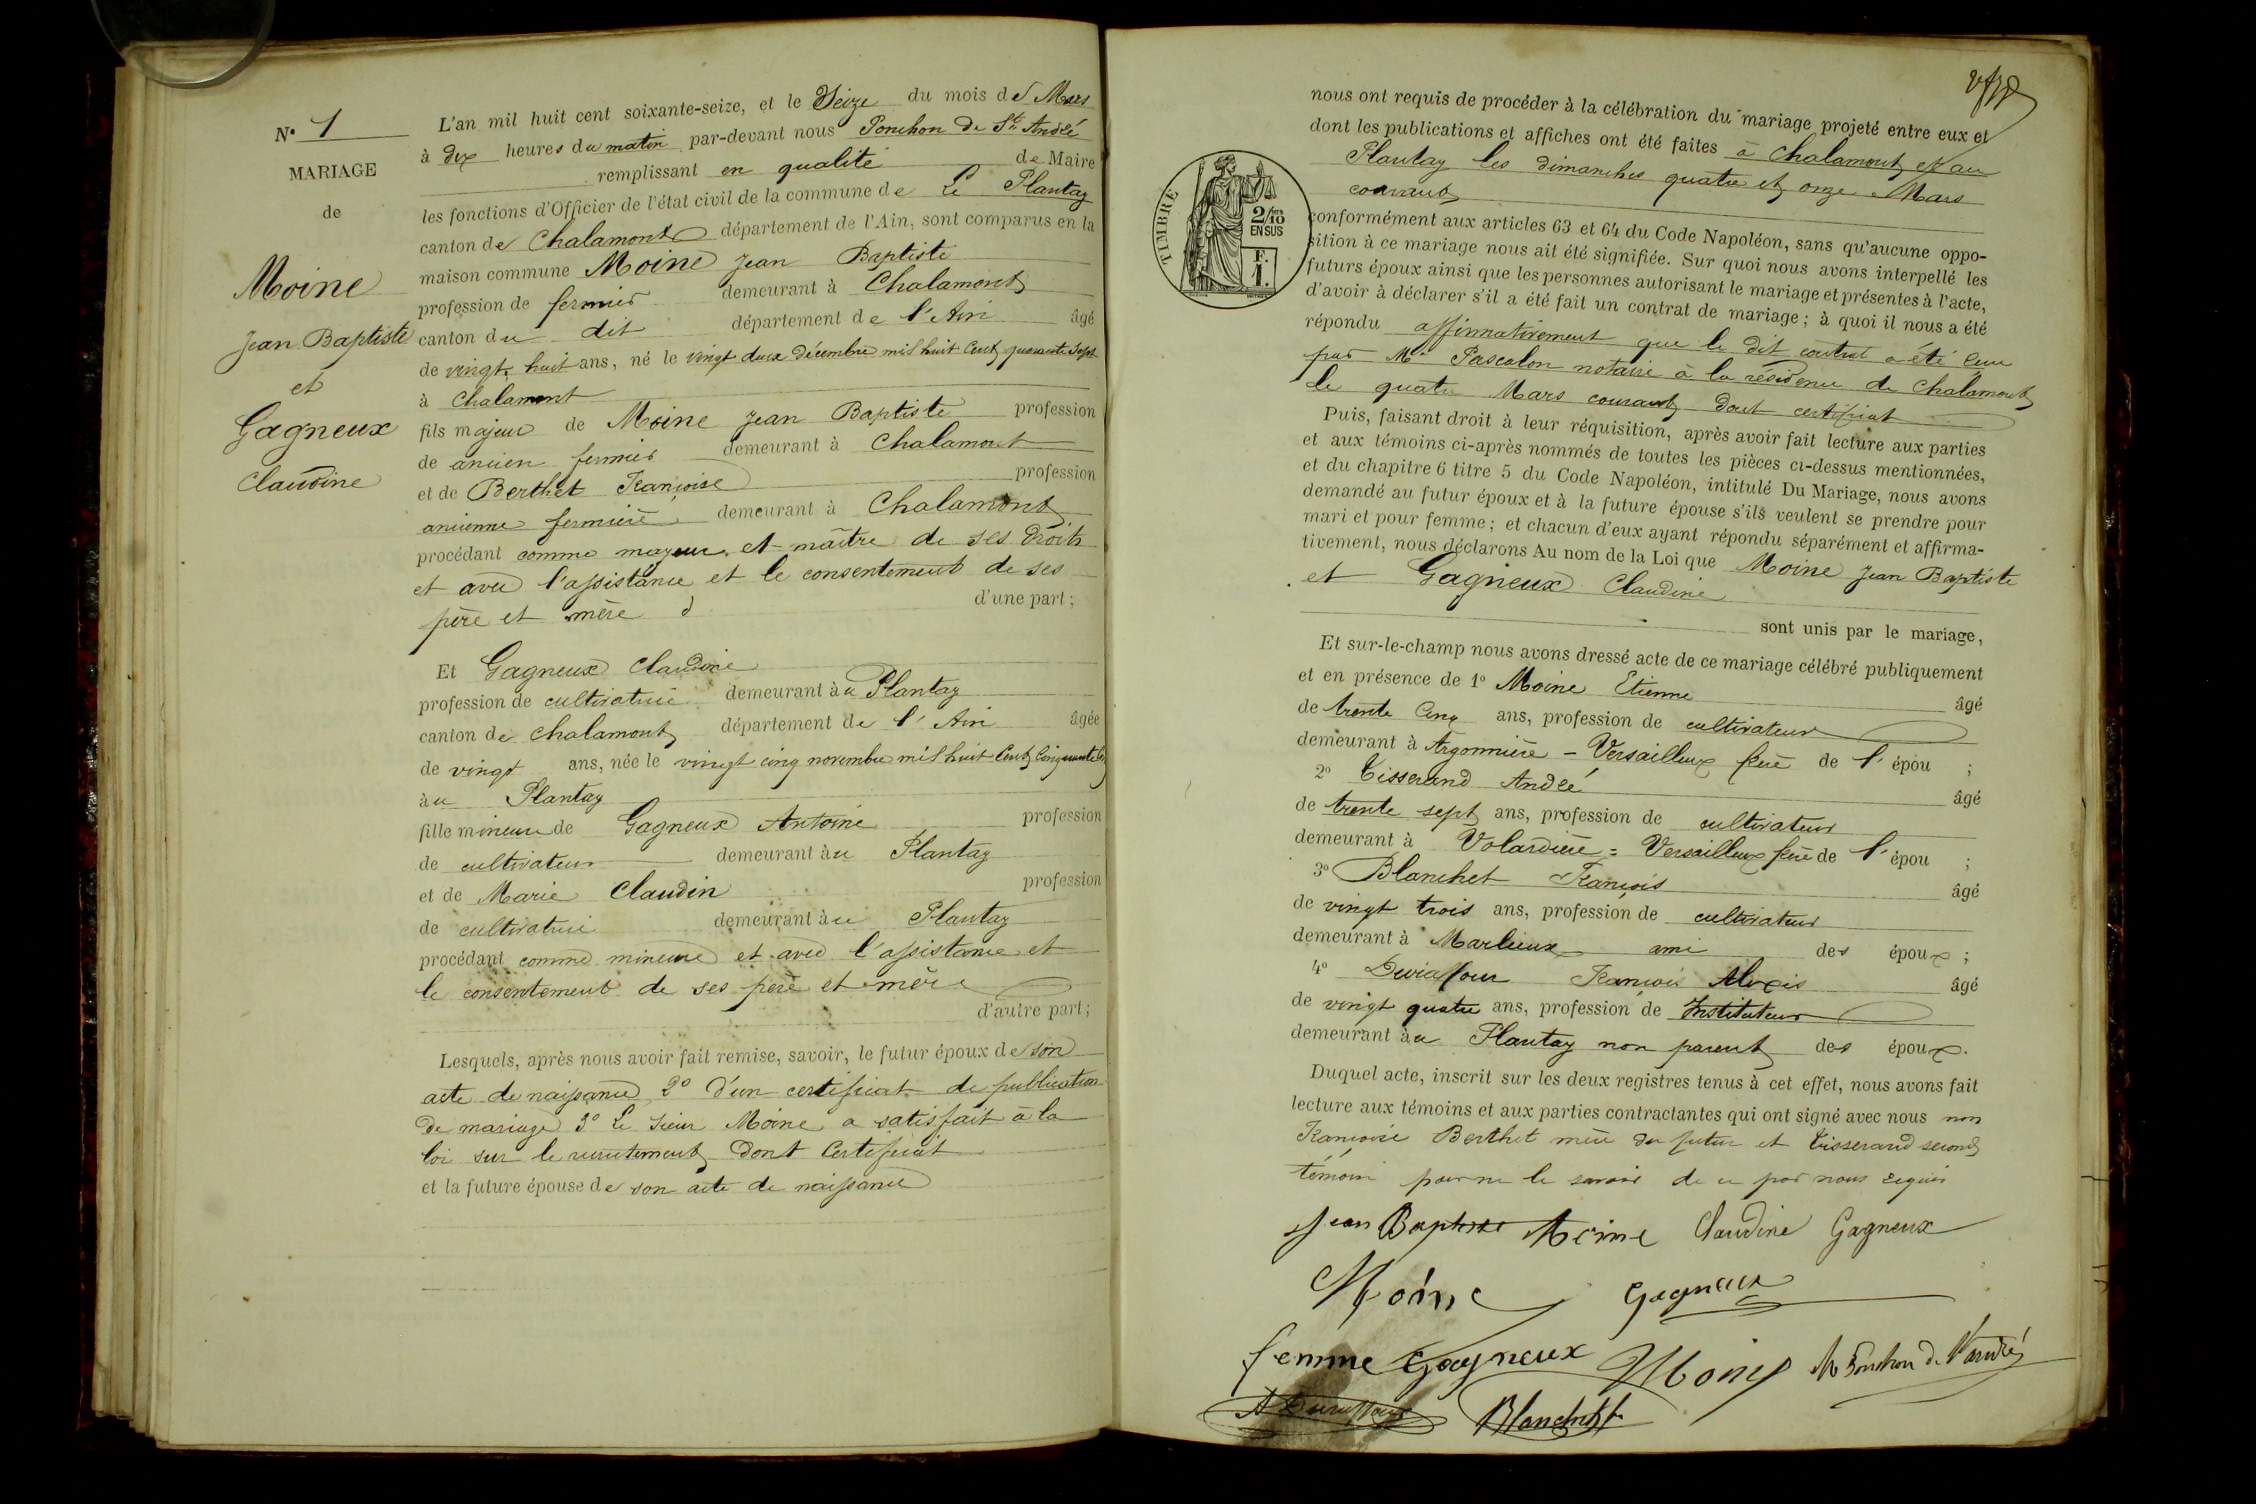 N° 1
MARIAGE
de
Moine
Jean Baptiste
et
Gagneux
Claudine
L'an mil huit cent soixante-seize, et le Seize du mois de Mars
à dix heures du matin par-devant nous Ponchon De St André
remplissant en qualité de Maire
les fonctions d'Officier de l'état civil de la commune de Le Plantay
canton de Chalamont département de l'Ain, sont comparus en la
maison commune Moine Jean Baptiste
profession de fermier demeurant à Chalamont
canton du dit département de l'Ain âgé
de vingt huit ans, né le vingt deux décembre mil huit cent quarante sept
à Chalamont
fils majeur de Moine Jean Baptiste profession
de ancien fermier demeurant à Chalamont
et de Berthet Françoise profession
ancienne fermière demeurant à Chalamont
procédant comme majeur et maître de ses droits
et avec l'assistance et le consentement de ses
père et mère d'une part;
Et Gagneux Claudine
profession de cultivatrice demeurant au Plantay
canton de Chalamont département de l'Ain âgée
de vingt ans, née le vingt cinq novembre mil huit cent cinquante cinq
au Plantay
fille mineure de Gagneux Antoine profession
de cultivateur demeurant au Plantay
et de Marie Claudin profession
de cultivatrice demeurant au Plantay
procédant comme mineure et avec l'assistance et
le consentement de ses père et mère
d'autre part;
Lesquels, après nous avoir fait remise, savoir, le futur époux de son
acte de naissance 2° d'un certificat de publication
de mariage 3° Le sieur Moine a satisfait à la
loi sur le recrutement dont certificat
et la future épouse de son acte de naissance
nous ont requis de procéder à la célébration du mariage projeté entre eux et
dont les publications et affiches ont été faites à Chalamont et au
Plantay les dimanches quatre et onze Mars
courant
TIMBRE
2/10 ENSUS
F. 1.
conformément aux articles 63 et 64 du Code Napoléon, sans qu'aucune oppo-
sition à ce mariage nous ait été signifiée. Sur quoi nous avons interpellé les
futurs époux ainsi que les personnes autorisant le mariage et présentes à l'acte,
d'avoir à déclarer s'il a été fait un contrat de mariage; à quoi il nous a été
répondu affirmativement que le dit contrat a été
par Me Pascalon notaire à la résidence de Chalamont
le quatre Mars courant dont certificat
Puis, faisant droit à leur réquisition, après avoir fait lecture aux parties
et aux témoins ci-après nommés de toutes les pièces ci-dessus mentionnées,
et du chapitre 6 titre 5 du Code Napoléon, intitulé Du Mariage, nous avons
demandé au futur époux et à la future épouse s'ils veulent se prendre pour
mari et pour femme; et chacun d'eux ayant répondu séparément et affirma-
tivement, nous déclarons Au nom de la Loi que Moine Jean Baptiste
et Gagneux Claudine
sont unis par le mariage,
Et sur-le-champ nous avons dressé acte de ce mariage célébré publiquement
et en présence de 1° Moine Etienne âgé
de trente cinq ans, profession de cultivateur
demeurant à Argonnière - Versailleux frère de l'épou ;
2° Tisserand André âgé
de trente sept ans, profession de cultivateur
demeurant à Volardière = Versailleux frère de l'épou ;
3° Blanchet François âgé
de vingt trois ans, profession de cultivateur
demeurant à Marlieux ami des époux ;
4° François Alexis âgé
de vingt quatre ans, profession de Instituteur
demeurant au Plantay non parent des époux.
Duquel acte, inscrit sur les deux registres tenus à cet effet, nous avons fait
lecture aux témoins et aux parties contractantes qui ont signé avec nous non
Françoise Berthet mère du futur et Tisserand second
témoin pour ne le savoir de ce par nous requis
Jean Baptiste Moine Claudine Gagneux
Moine Gagneux
femme Gagneux Moine M Ponchon de St André
Blanchet